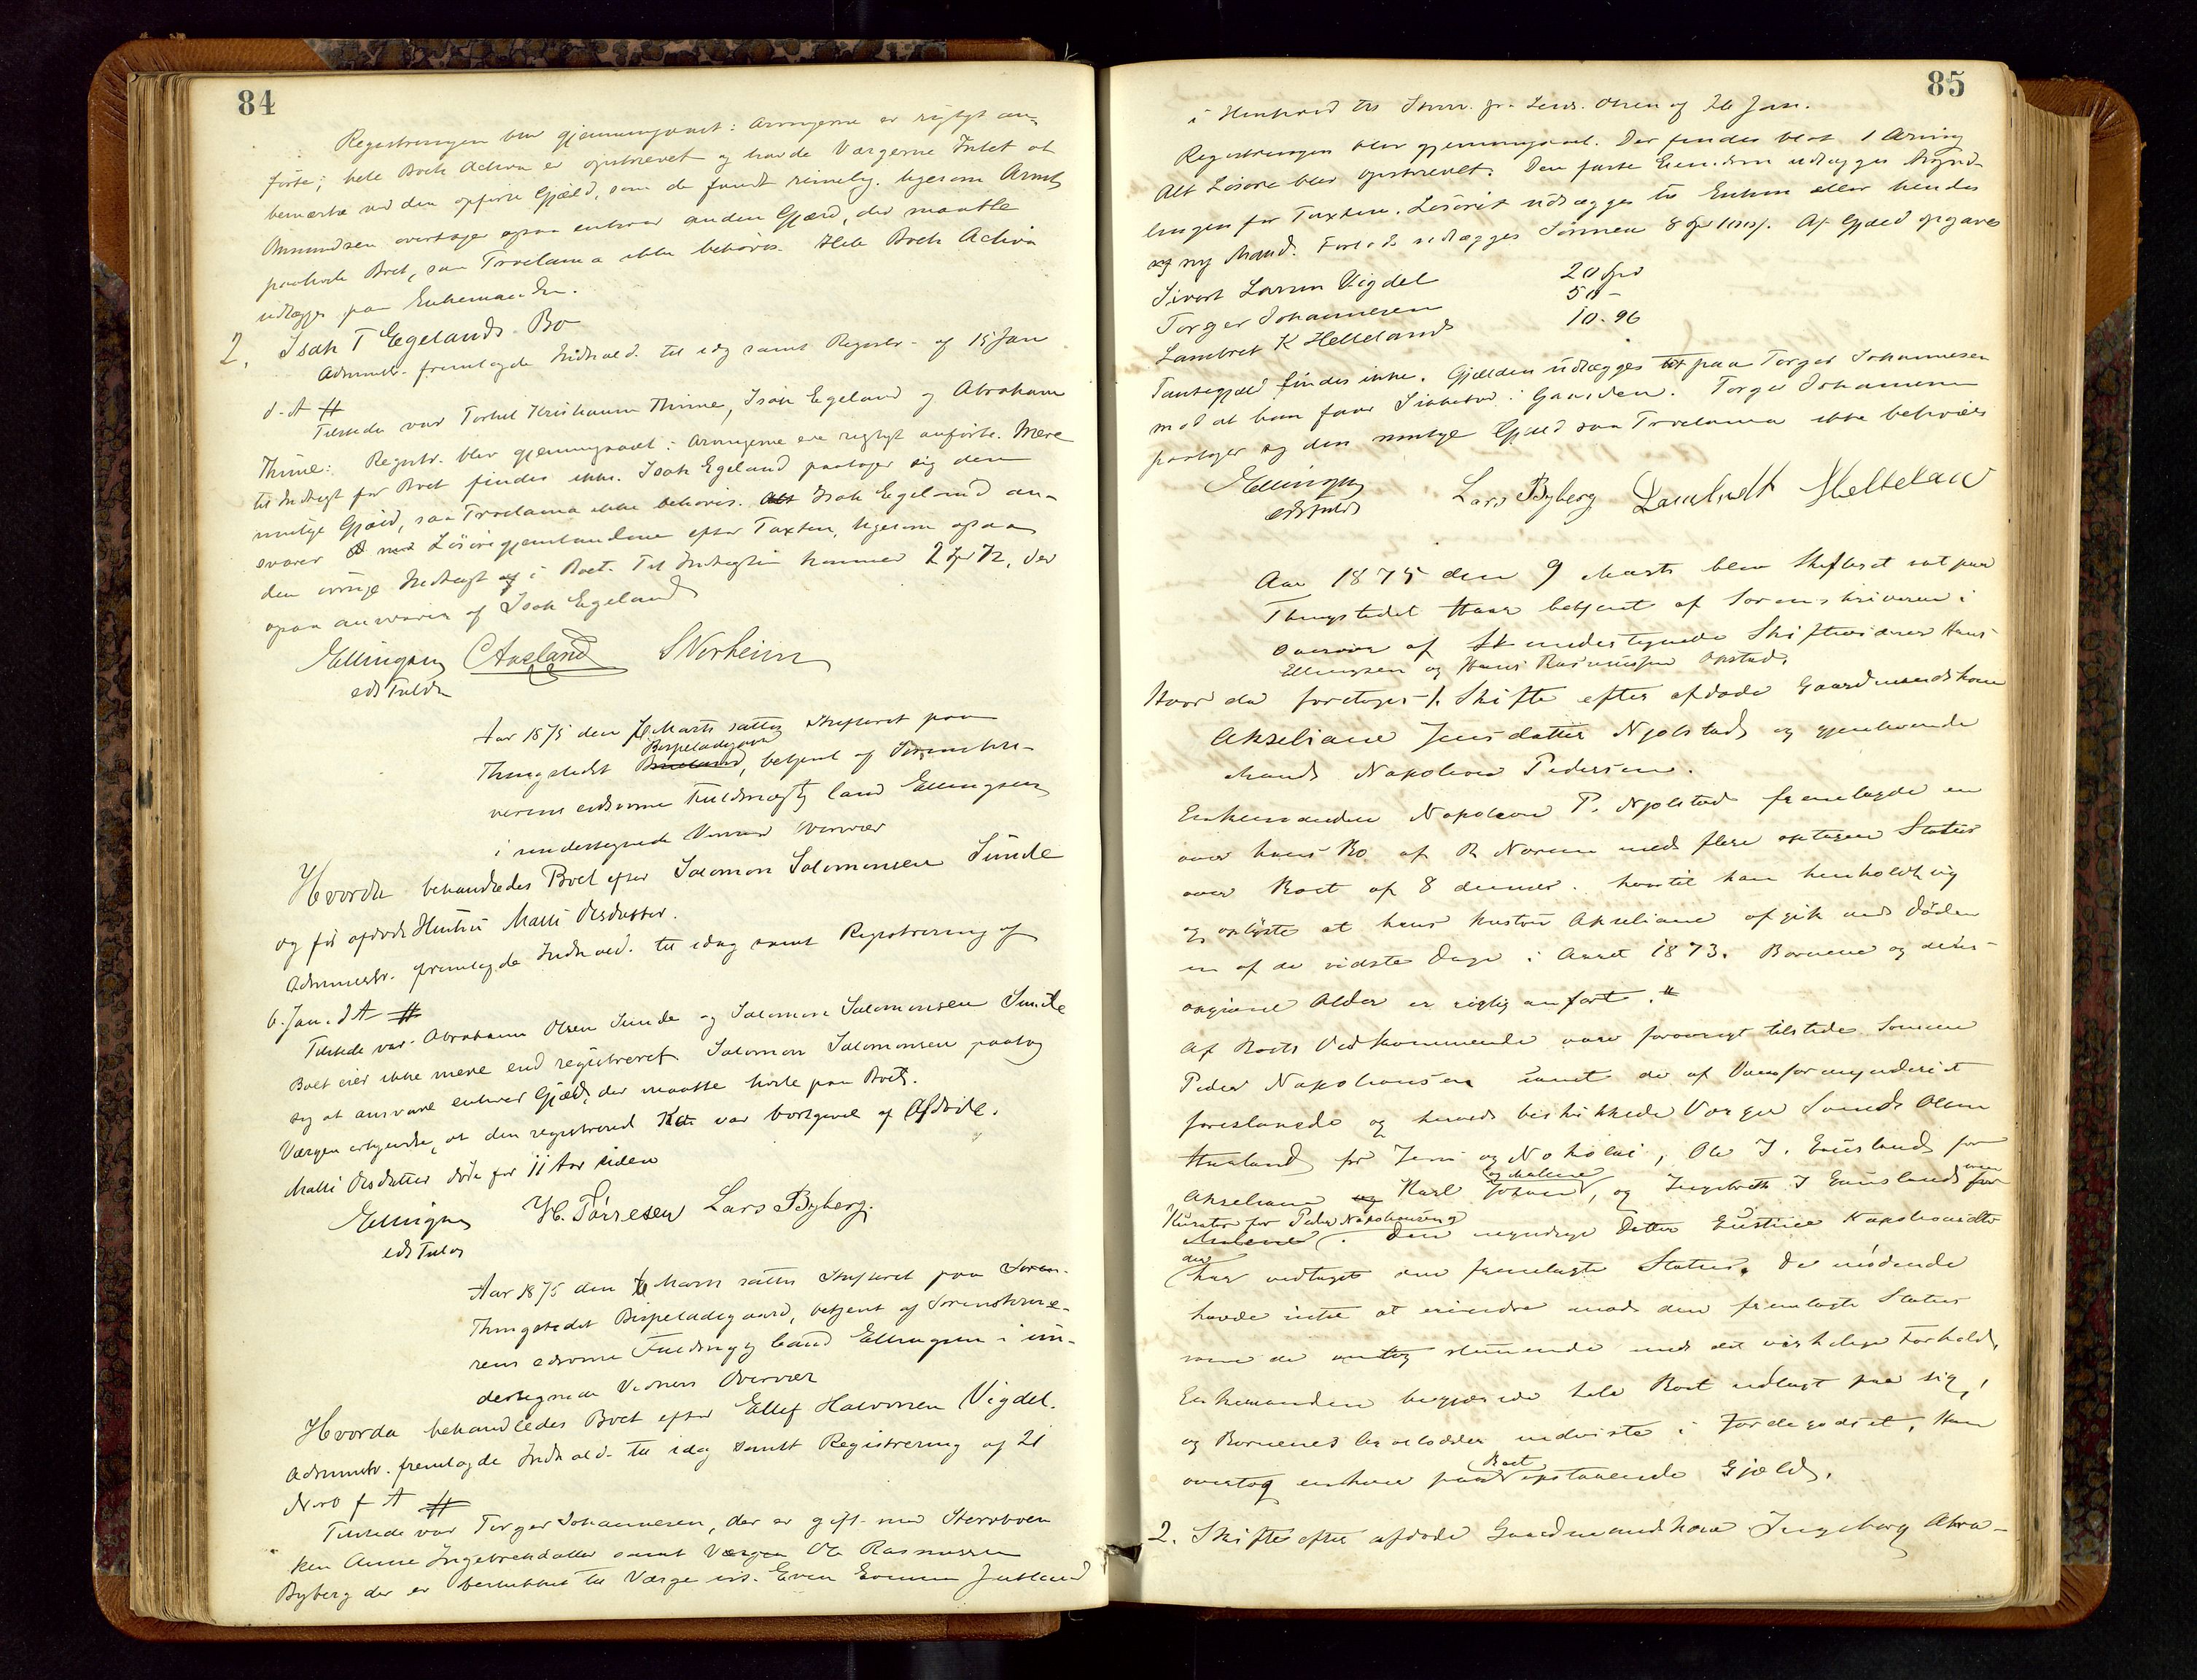 84
Registreringen blev gjennemgaaet: Arvingerne er rigtigt an-
førte; hele Boets Activa er opskrevet og havde Værgerne Intet at
bemærke ved den opførte Gjæld, som de fandt rimelig, ligesom
Amundsen overtager ogsaa enhver anden Gjæld, der maatte
paahvile Boet, saa Proclama ikke behøves. Hele Boets Activa
udlægges paa Enkemanden.
2. Isak T Egelands Bo
Adminstr. fremlagde Indkald. til idag samt Registr. af 15 Jan
d. A #
Tilstede var Torkel Thime, Isak Egeland og Abraham
Thime: Registr. blev gjennemgaaet: Arvingerne ere rigtigt anførte. Mere
til Indtægt for Boet findes ikke. Isak Egeland paatager sig den
mulige Gjæld, saa Proclama ikke behøves. Isak Egeland an-
svarer Løsøregjenstandene efter Taxten, ligesom ogsaa
den øvrige Indtægt i Boet. Til Indtægten kommer 2 Spd 72, der
ogsaa ansvares af Isak Egeland
Ellingsen CAaeland S Norheim
eds Fuldm
Aar 1875 den 6 Marts sattes Skifteret paa
Thingstedet Bispeladegaard, betjent af Sorenskri-
verens edsvorne Fuldmægtig Ellingsen
i undertegnede Vidners Overvær
Hvorda behandledes Boet efter Salomon Salomonsen Sunde
og før afdøde Hustru Malli Olsdatter.
Adminstr. fremlagde Indkald. til idag samt Registrering af
6. Jan. d A #
Tilstede var Abraham Olsen Sunde og Salomon Salomonsen Sunde
Boet eier ikke mere end registreret. Salomon Salomonsen paatog
sig at ansvare enhver Gjæld, der maatte hvile paa Boet.
Værgen erkjendte, at den registrerede var bortgivet af Afdøde.
Malli Olsdatter døde for 11 Aar siden
Ellingsen H. Tørresen Lars Byberg.
eds Fuldm
Aar 1875 den 6 Marts sattes Skifteret paa
Thingstedet Bispeladegaard, betjent af Sorenskrive-
rens edsvorne Fuldmægtig Ellingsen i un-
dertegnede Vidners Overvær
Hvorda behandledes Boet efter Ellef Halvorsen Vigdel.
Adminstr. fremlagde Indkald. til idag samt Registrering af 21
Novb f A #
Tilstede var Torger Johannesen, der er gift med Stervboen-
ken Anne Ingebretsdatter samt Værgen Ole Rasmussen
Byberg der er beskikket til Værge
85
i Henhold til Skriv. fra Lensm. Olsen af 26 Jan.
Registreringen blev gjennemgaaet. Der findes blot 1 Arving
Alt Løsøre blev opskrevet. Den faste Eiendom udlægges
for Taxten. Løsøret udlægges til Enken eller hendes
ny Mand. udlægges Sønnen 8 Spd. Af Gjæld opgaves
Sivert Larsen Vigdel 20 Spd
Torger Johannesen 50 -
Lambret K Helleland 10. 96
Pantegjæld findes ikke. Gjælden udlægges paa Torger Johannesen
mod at han faar Sikkerhed i Gaarden. Torger Johannesen
paatager sig den mulige Gjæld saa Proclama ikke behøves
Ellingsen Lars Byberg Lambrett Helleland
eds Fuldm
Aar 1875 den 9 Marts blev Skifteret sat paa
Thingstedet Haar betjent af Sorenskriveren i
Overvær af undertegnede Skiftevidner Hans
Ellingsen og Hans Rasmussen Opstad.
Hvor da foretoges 1. Skifte efter afdøde Gaardmandskone
Akseliane Jensdatter Njølstad og gjenlevende
Mand Napoleon Pedersen.
Enkemanden Napoleon P. Njølstad fremlagde en
over hans Bo af R Norem med flere optagen Status
over Boet af 8 dennes. hvortil han henholdt sig
og oplyste at hans Hustru Akseliane afgik ved Døden
en af de sidste Dage i Aaret 1873. Børnene og deres
opgivne Alder er rigtig anført. #
Af Boets Vedkommende vare forøvrigt tilstede Sønnen
Peder Napoleonsen samt de af Overformynderiet
foreslaaede og herved beskikkede Værger Svend Olsen
Haaland for Jens og Nikolai, Ole J. Grøsland for
Akseliane Karl Johan og Malene, og Ingebreth J Grøsland som
Kurator for Peder Napoleonsen. Den myndige Datter Gustine Napoleonsdtr
har vedtaget den fremlagte Status. De mødende
havde intet at erindre mod den fremlagte Status
som de antog stemmende med det virkelige Forhold.
Enkemanden begjærede hele Boet udlagt paa sig,
og Børnenes Arvelodder indviste i Jordegodset. Han
overtog enhver paa Boet opstaaende Gjæld.
2. Skifte efter afdøde Gaardmandskone Ingeborg Abra-